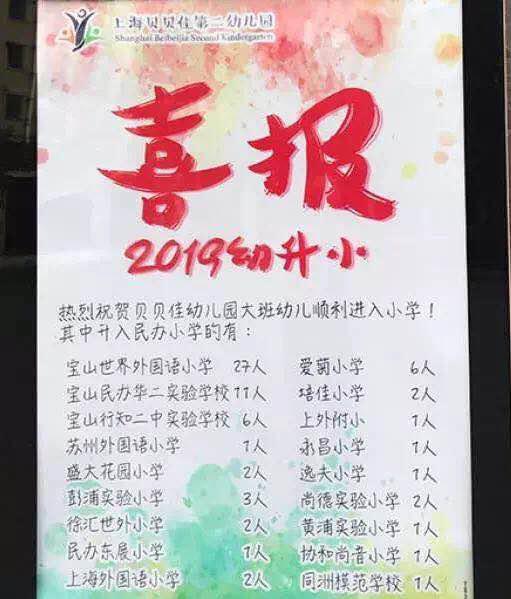 上海贝贝佳第二幼儿园
Shanghai Beibeijia Second Kindergarten
喜报
2019幼升小
热烈祝贺贝贝佳幼儿园大班幼儿顺利进入小学！
其中升入民办小学的有：
宝山世界外国语小学 27人
宝山民办华二实验学校 11人
宝山行知二中实验学校 6人
苏州外国语小学 1人
盛大花园小学 2人
彭浦实验小学 3人
徐汇世外小学 2人
民办东展小学 1人
上海外国语小学 2人
爱菊小学 6人
培佳小学 2人
上外附小 1人
永昌小学 1人
逸夫小学 1人
尚德实验小学 2人
黄浦实验小学 1人
协和尚音小学 1人
同洲模范学校 1人